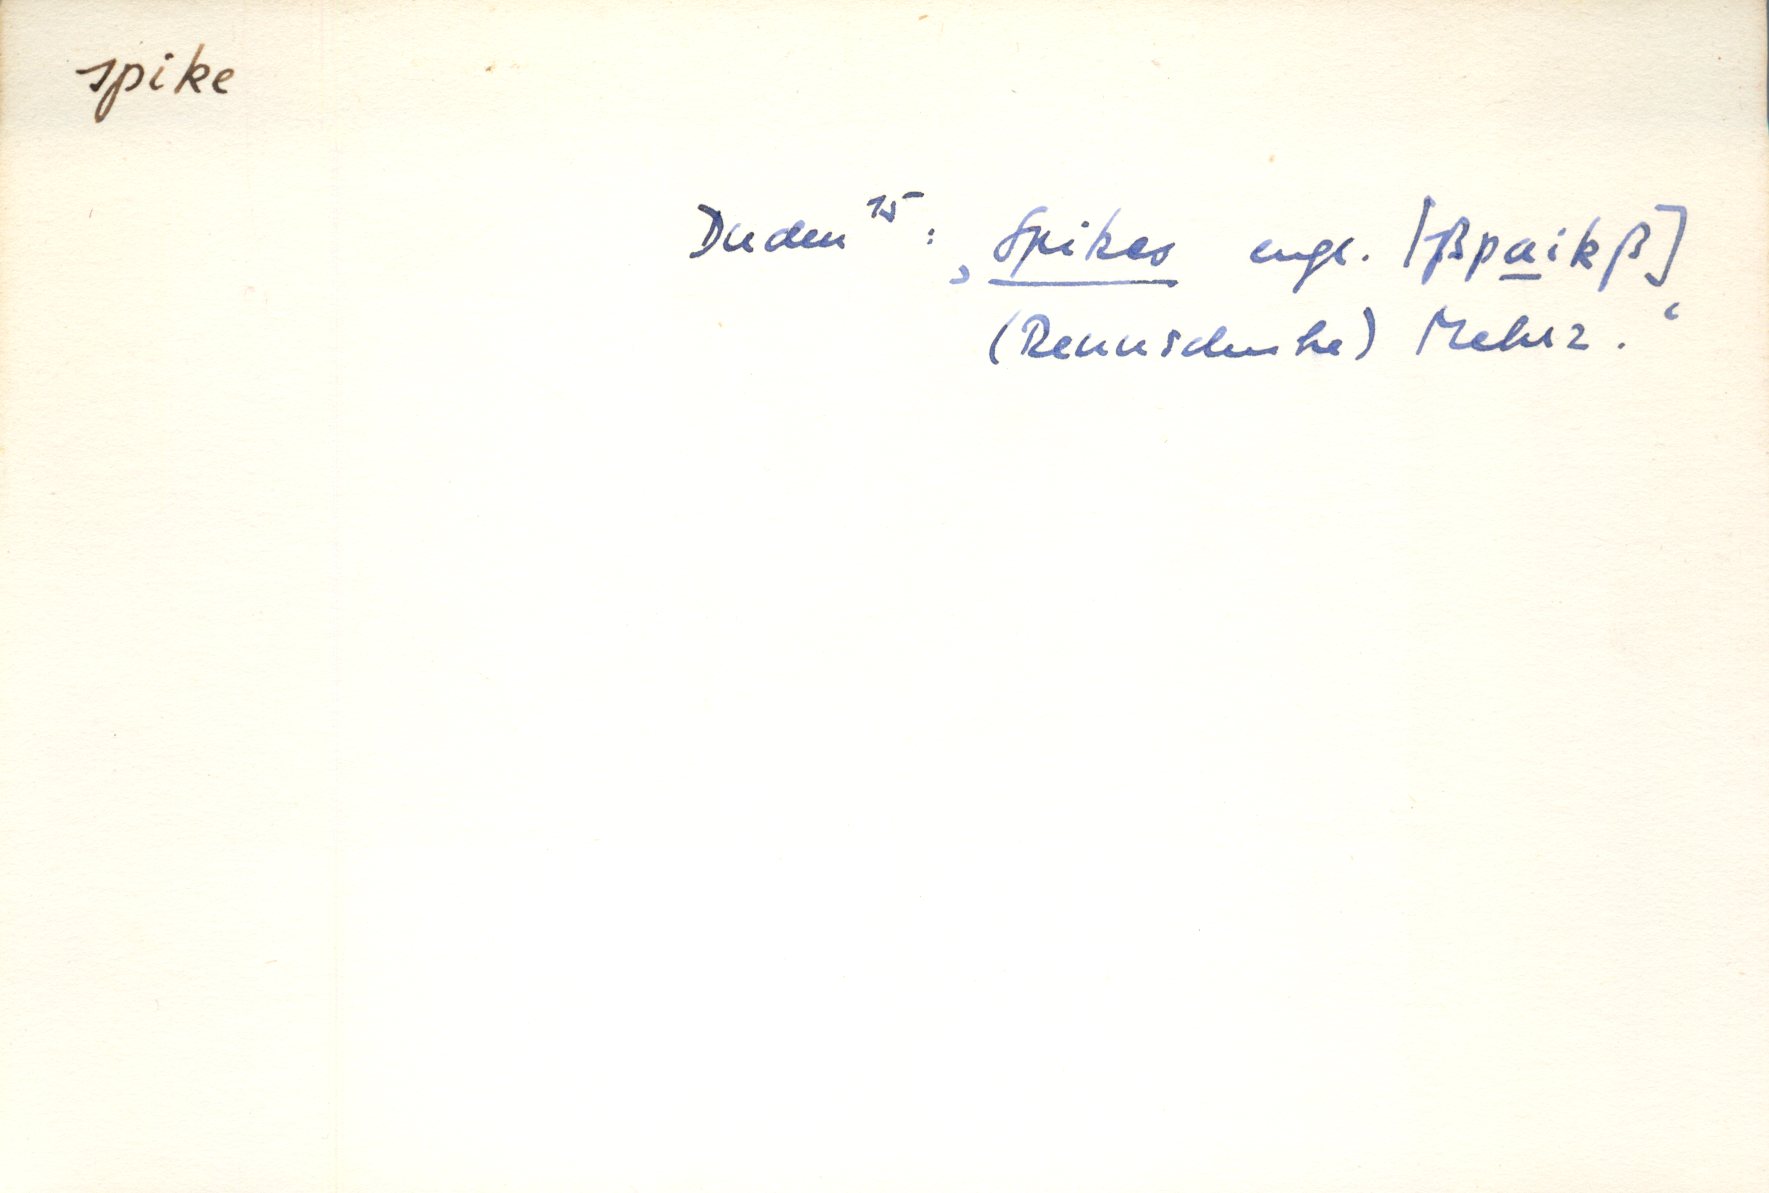 spike
Duden ¹⁵: ‚Spikes engl. [ßpaikß]
(Rennschuhe) Mehrz.‘